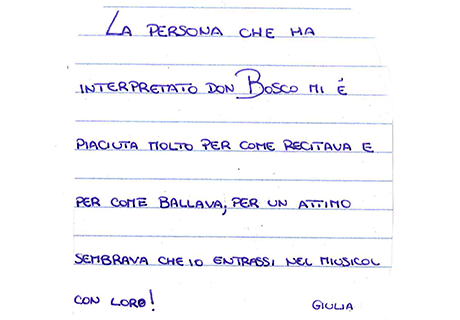 LA PERSONA CHE HA
INTERPRETATO DON BOSCO MI È
PIACIUTA MOLTO PER COME RECITAVA E
PER COME BALLAVA; PER UN ATTIMO
SEMBRAVA CHE IO ENTRASSI NEL MIUSICOL
CON LORO!
GIULIA